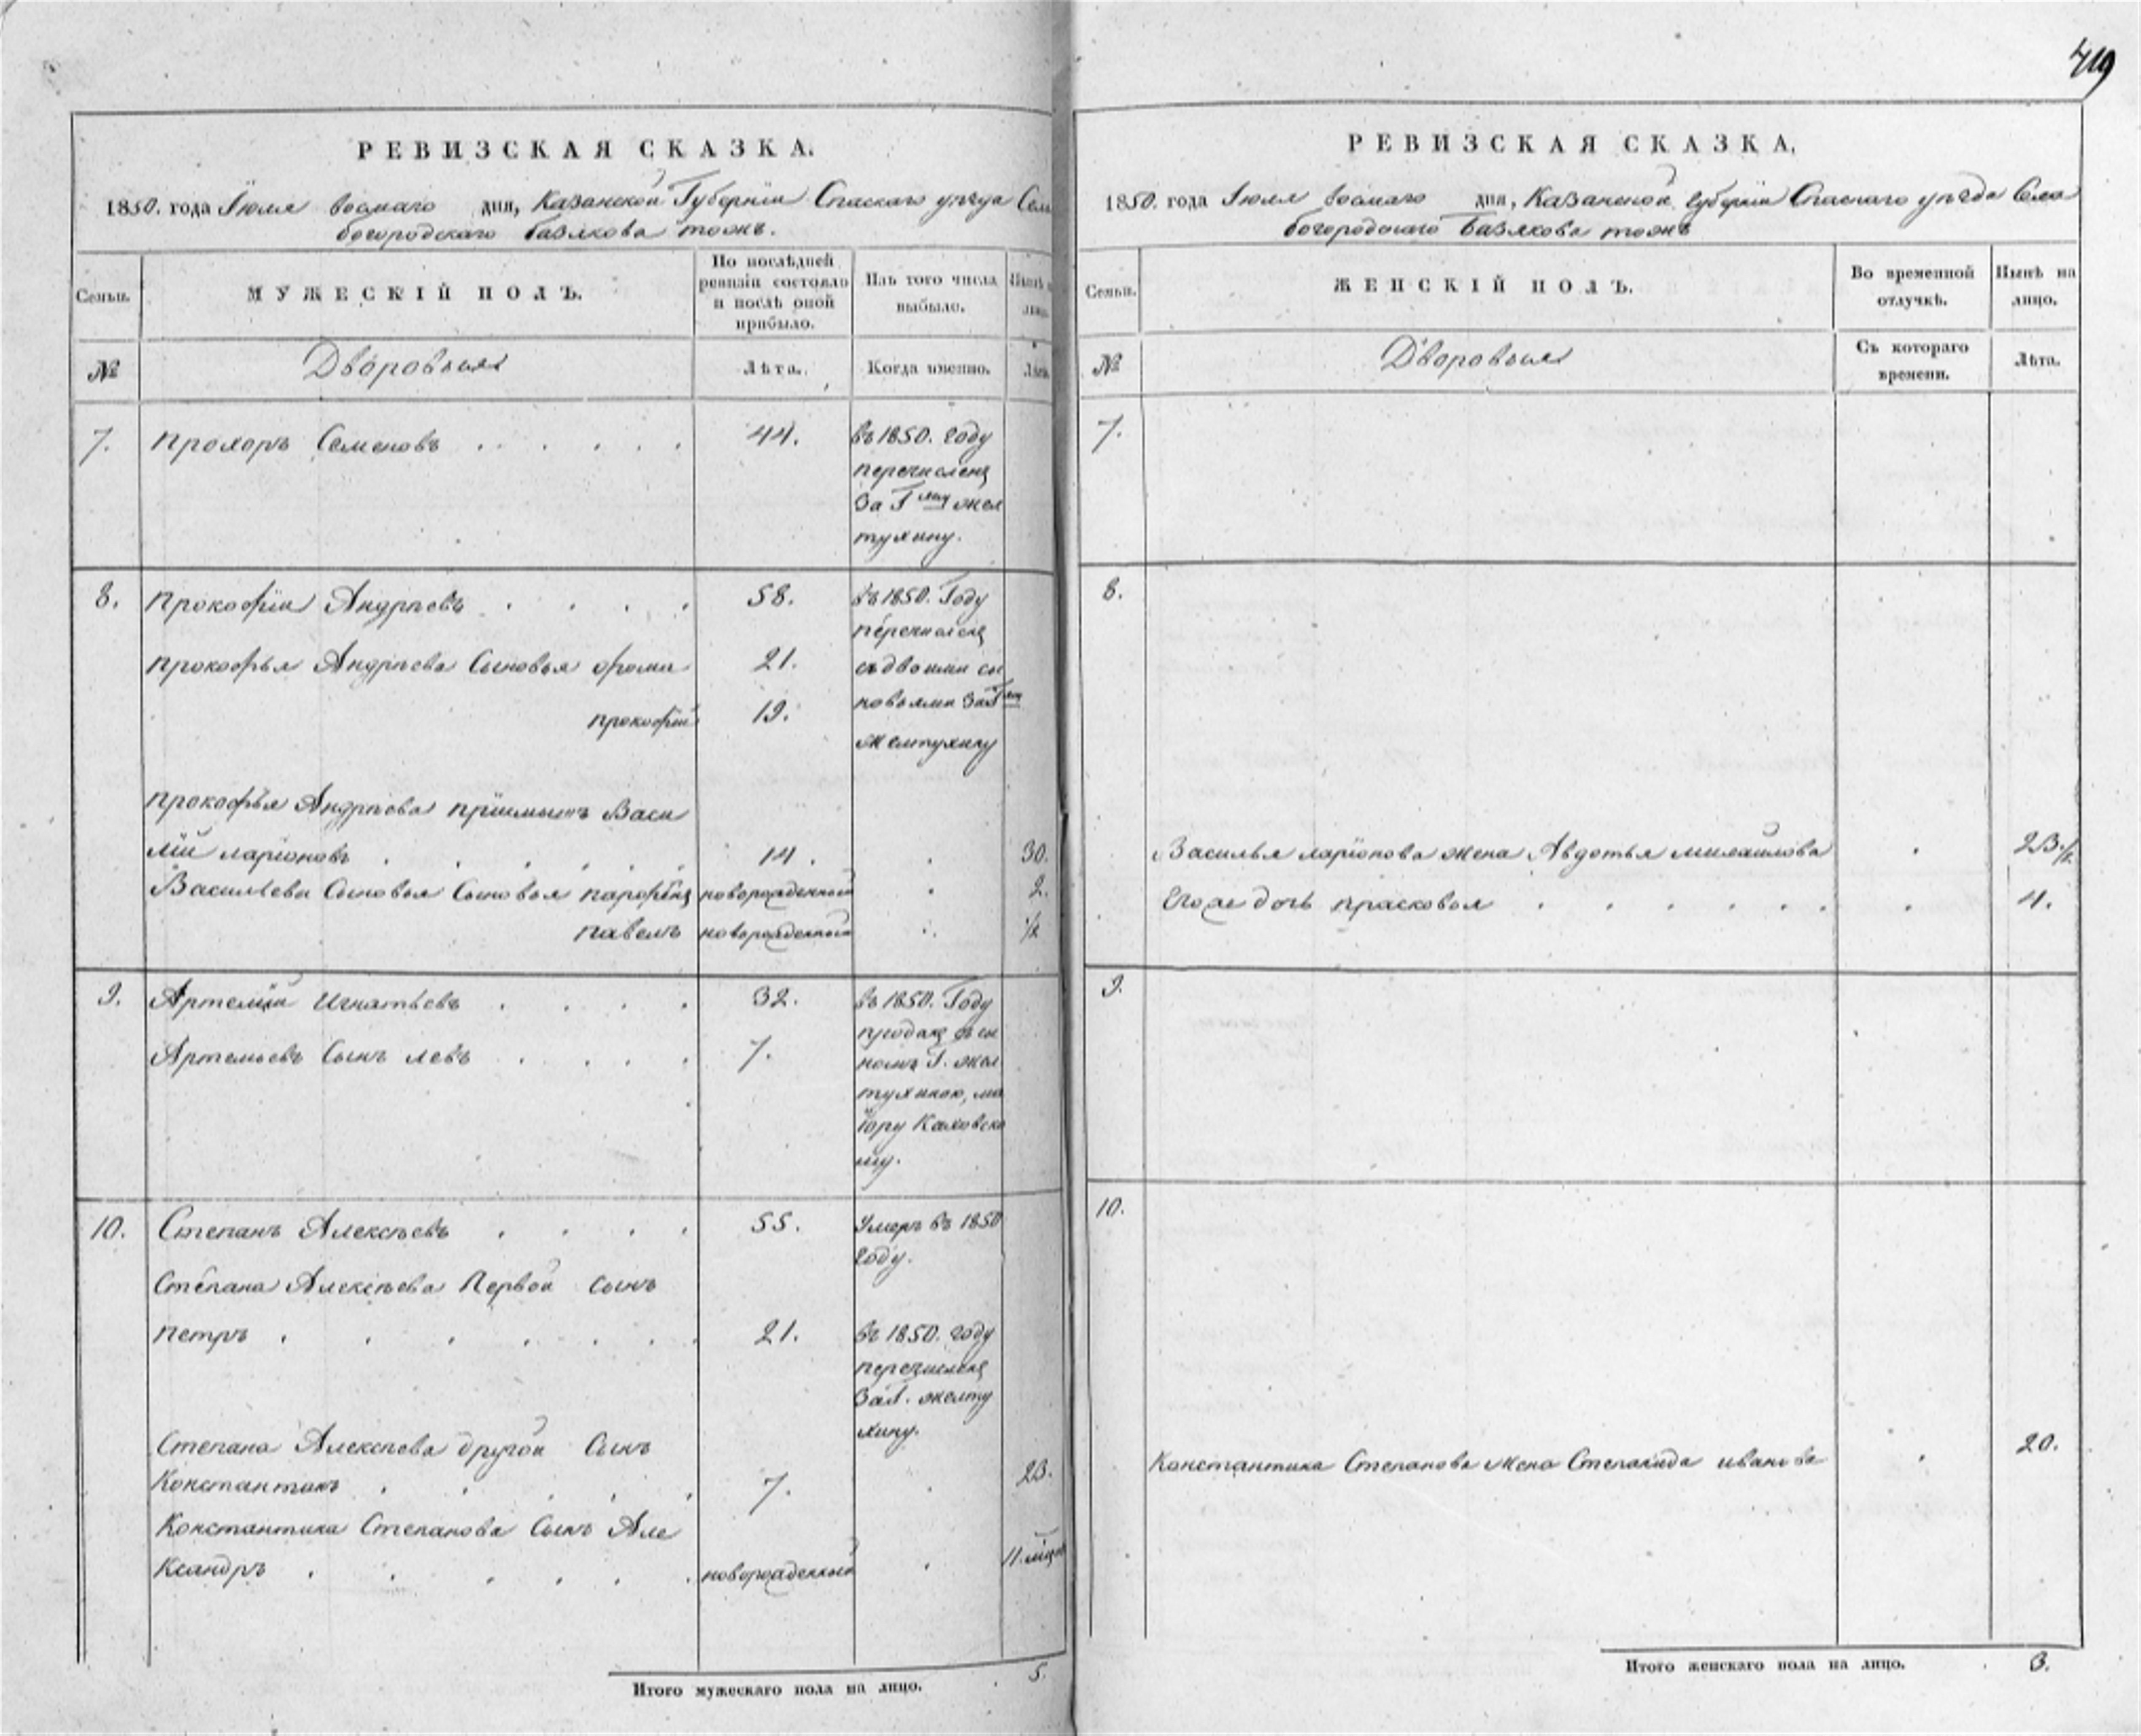 419
РЕВИЗСКАЯ СКАЗКА.
1850. года Іюля восмаго дня, Казанской Губерніи Спаскаго уѣзда Села
богородскаго базякова тожъ.
Семьи. МУЖЕСКІЙ ПОЛЪ. По послѣдней ревизіи состояло и послѣ оной прибыло. Изъ того числа выбыло. Нынѣ
№ Дворовыя Лѣта. Когда именно. Лѣта
7. прохоръ Семеновъ 44. въ 1850. году
перечисленъ
за Г жел
тухину.
8. прокофіи Андрѣевъ 58. въ 1850. Году
перечисленъ
прокофья Андрѣева Сыновья фома 21. съ двоими сы
новьями за Г
прокофіи 19.
желтухину
прокофья Андрѣева пріимышъ Васи
лій ларіоновъ 14. 30.
Васильева Сыновья Сыновья парофенъ новорожденный 2.
павелъ новорожденный ½
9. Артеміи Игнатьевъ 32. въ 1850. Году
проданъ съ сы
Артемьевъ Сынъ левъ 7. номъ Г. жел
тухиною, ма
іору Каховско
му.
10. Степанъ Алексѣевъ 55. Умеръ въ 1850
году.
Степана Алексѣева Первой сынъ
петръ 21. въ 1850. году
перечисленъ
за Г. желту
хину.
Степана Алексѣева другой Сынъ
Константинъ 7. 23.
Константина Степанова Сынъ Але
ксандръ новорожденный 11.
Итого мужескаго пола на лицо. 5.
РЕВИЗСКАЯ СКАЗКА.
1850. года Іюля восмаго дня, Казанской губерніи Спаскаго уѣзда Села
богородскаго Базякова тожъ
Семьи. ЖЕНСКІЙ ПОЛЪ. Во временной отлучкѣ. Нынѣ на лицо.
№ Дворовыя Съ котораго времени. Лѣта.
7.
8.
Василья ларіонова жена Авдотья михайлова 23.½
Егоже дочь прасковья 4.
9.
10.
Константина Степанова жена Степанида иванова 20.
Итого женскаго пола на лицо. 3.